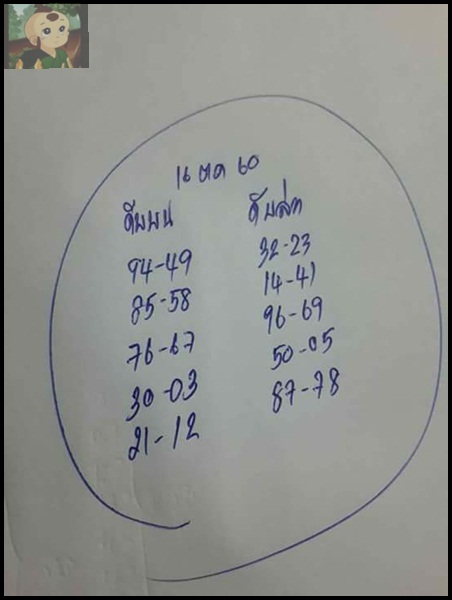 16 ตค 60
ดับบน
94-49
85-58
76-67
30-03
21-12
ดับล่าง
32-23
14-41
96-69
50-05
87-78